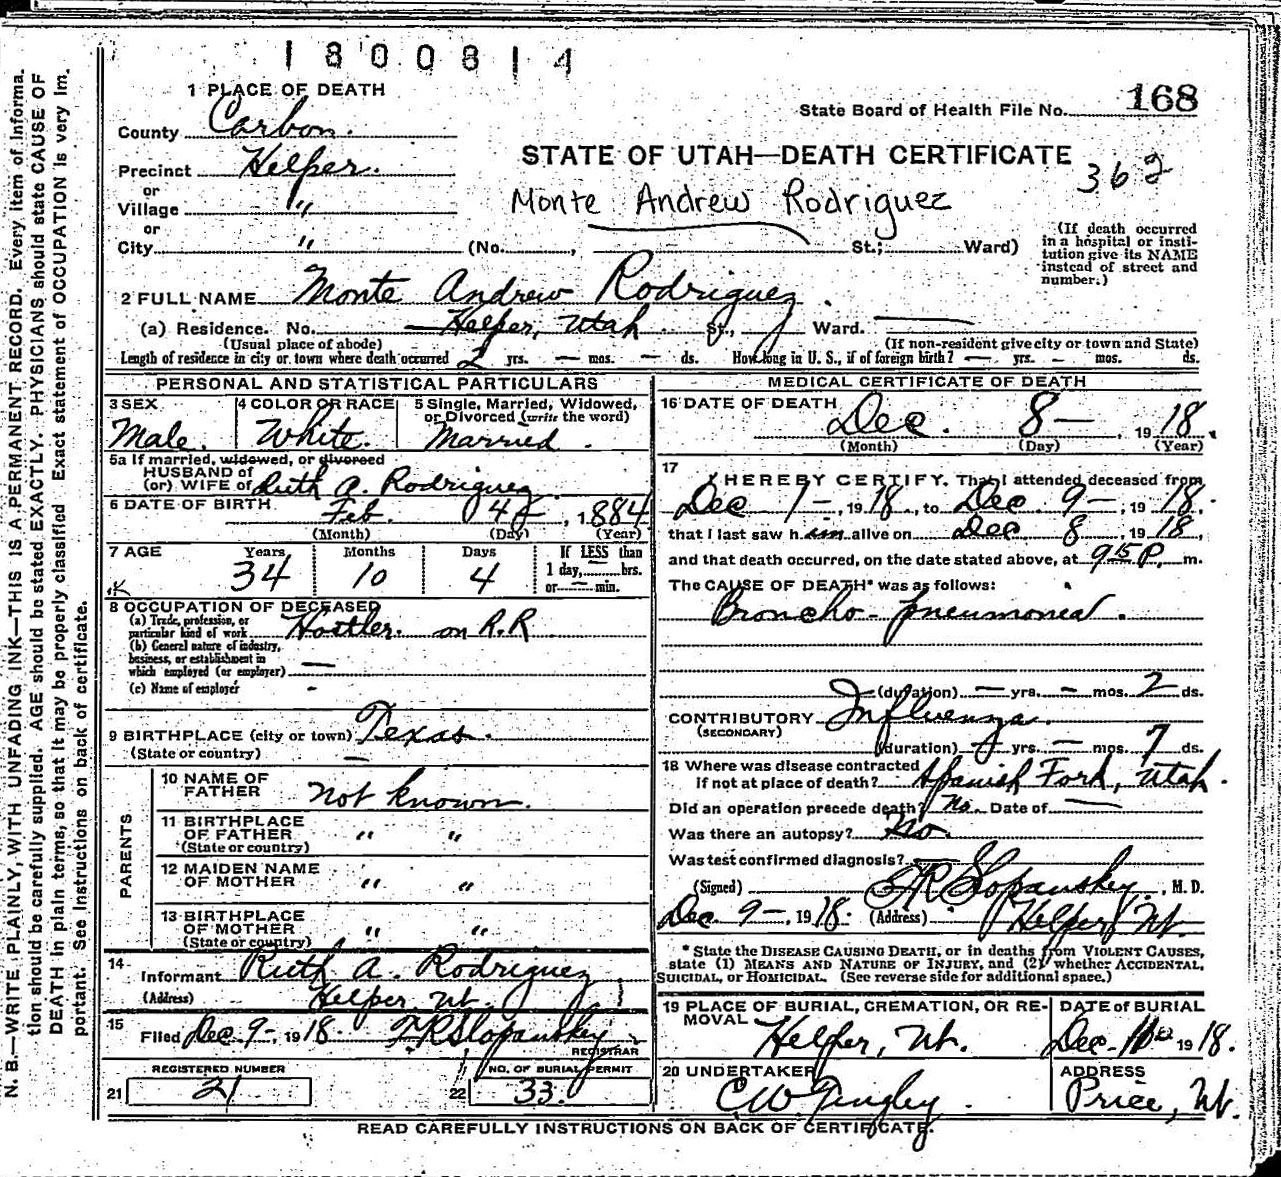 1800814
1 PLACE OF DEATH
State Board of Health File No. 168
County Carbon.
STATE OF UTAH—DEATH CERTIFICATE
362
Precinct Helper.
or
Village "
Monte Andrew Rodriguez
or
City " (No. , St.; Ward)
(If death occurred in a hospital or institution give its NAME instead of street and number.)
2 FULL NAME Monte Andrew Rodriguez.
(a) Residence. No. — Helper, Utah. St., Ward. —
(Usual place of abode) (If non-resident give city or town and State)
Length of residence in city or town where death occurred 2 yrs. — mos. — ds. How long in U. S., if of foreign birth? — yrs. – mos. ds.
PERSONAL AND STATISTICAL PARTICULARS
3 SEX Male.
4 COLOR OR RACE White.
5 Single, Married, Widowed, or Divorced (write the word) Married.
5a If married, widowed, or divorced
HUSBAND of
(or) WIFE of Ruth A. Rodriguez
6 DATE OF BIRTH Feb. 4, 1884
(Month) (Day) (Year)
7 AGE Years 34 Months 10 Days 4 If LESS than 1 day, — hrs. or — min.
8 OCCUPATION OF DECEASED
(a) Trade, profession, or particular kind of work Hostler. on R.R
(b) General nature of industry, business, or establishment in which employed (or employer) —
(c) Name of employer -
9 BIRTHPLACE (city or town) Texas.
(State or country) —
PARENTS
10 NAME OF FATHER Not known.
11 BIRTHPLACE OF FATHER (State or country) " "
12 MAIDEN NAME OF MOTHER " "
13 BIRTHPLACE OF MOTHER (State or country) " "
14 Informant Ruth A. Rodriguez
(Address) Helper, Ut.
15 Filed Dec. 9-, 1918. F.R. Slopanskey
REGISTRAR
REGISTERED NUMBER
21 21
NO. OF BURIAL PERMIT
22 33
MEDICAL CERTIFICATE OF DEATH
16 DATE OF DEATH Dec. 8-, 1918.
(Month) (Day) (Year)
17 I HEREBY CERTIFY, That I attended deceased from
Dec 1-, 1918., to Dec. 9-, 1918.
that I last saw him alive on Dec 8, 1918,
and that death occurred, on the date stated above, at 9 15 P. m.
The CAUSE OF DEATH* was as follows:
Broncho-pneumonia.
(duration) — yrs. – mos. 2 ds.
CONTRIBUTORY Influenza.
(SECONDARY)
(duration) — yrs. — mos. 7 ds.
18 Where was disease contracted
if not at place of death? Spanish Fork, Utah.
Did an operation precede death? No. Date of —
Was there an autopsy? No
Was test confirmed diagnosis? —
(Signed) F R Slopanskey, M. D.
Dec 9-, 1918. (Address) Helper, Ut.
*State the DISEASE CAUSING DEATH, or in deaths from VIOLENT CAUSES,
state (1) MEANS AND NATURE OF INJURY, and (2) whether ACCIDENTAL,
SUICIDAL, or HOMICIDAL. (See reverse side for additional space.)
19 PLACE OF BURIAL, CREMATION, OR REMOVAL Helper, Ut.
DATE of BURIAL Dec. 1918.
20 UNDERTAKER C W Tingley.
ADDRESS Price, Ut.
READ CAREFULLY INSTRUCTIONS ON BACK OF CERTIFICATE.
N. B.—WRITE PLAINLY, WITH UNFADING INK—THIS IS A PERMANENT RECORD. Every item of informa-
tion should be carefully supplied. AGE should be stated EXACTLY. PHYSICIANS should state CAUSE OF
DEATH in plain terms, so that it may be properly classified. Exact statement of OCCUPATION is very im-
portant. See instructions on back of certificate.